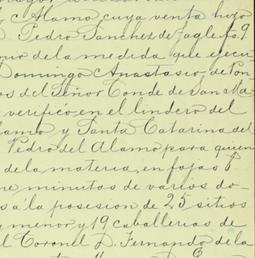 y Alamo, cuya venta hizo
Pedro Sanchez de Tagle fs 9
de la medida que ejecu
Domingo Anastasio de Pon
os del Señor Conde de San Ma
verificó en el lindero del
lamo y Santa Catarina del
Pedro del Alamo para quien
de la materia, en fojas 8
ne, minutas de varios do-
s á la posesion de 25 sitios
y menor y 19 caballerias de
l Coronel D. Fernando de la